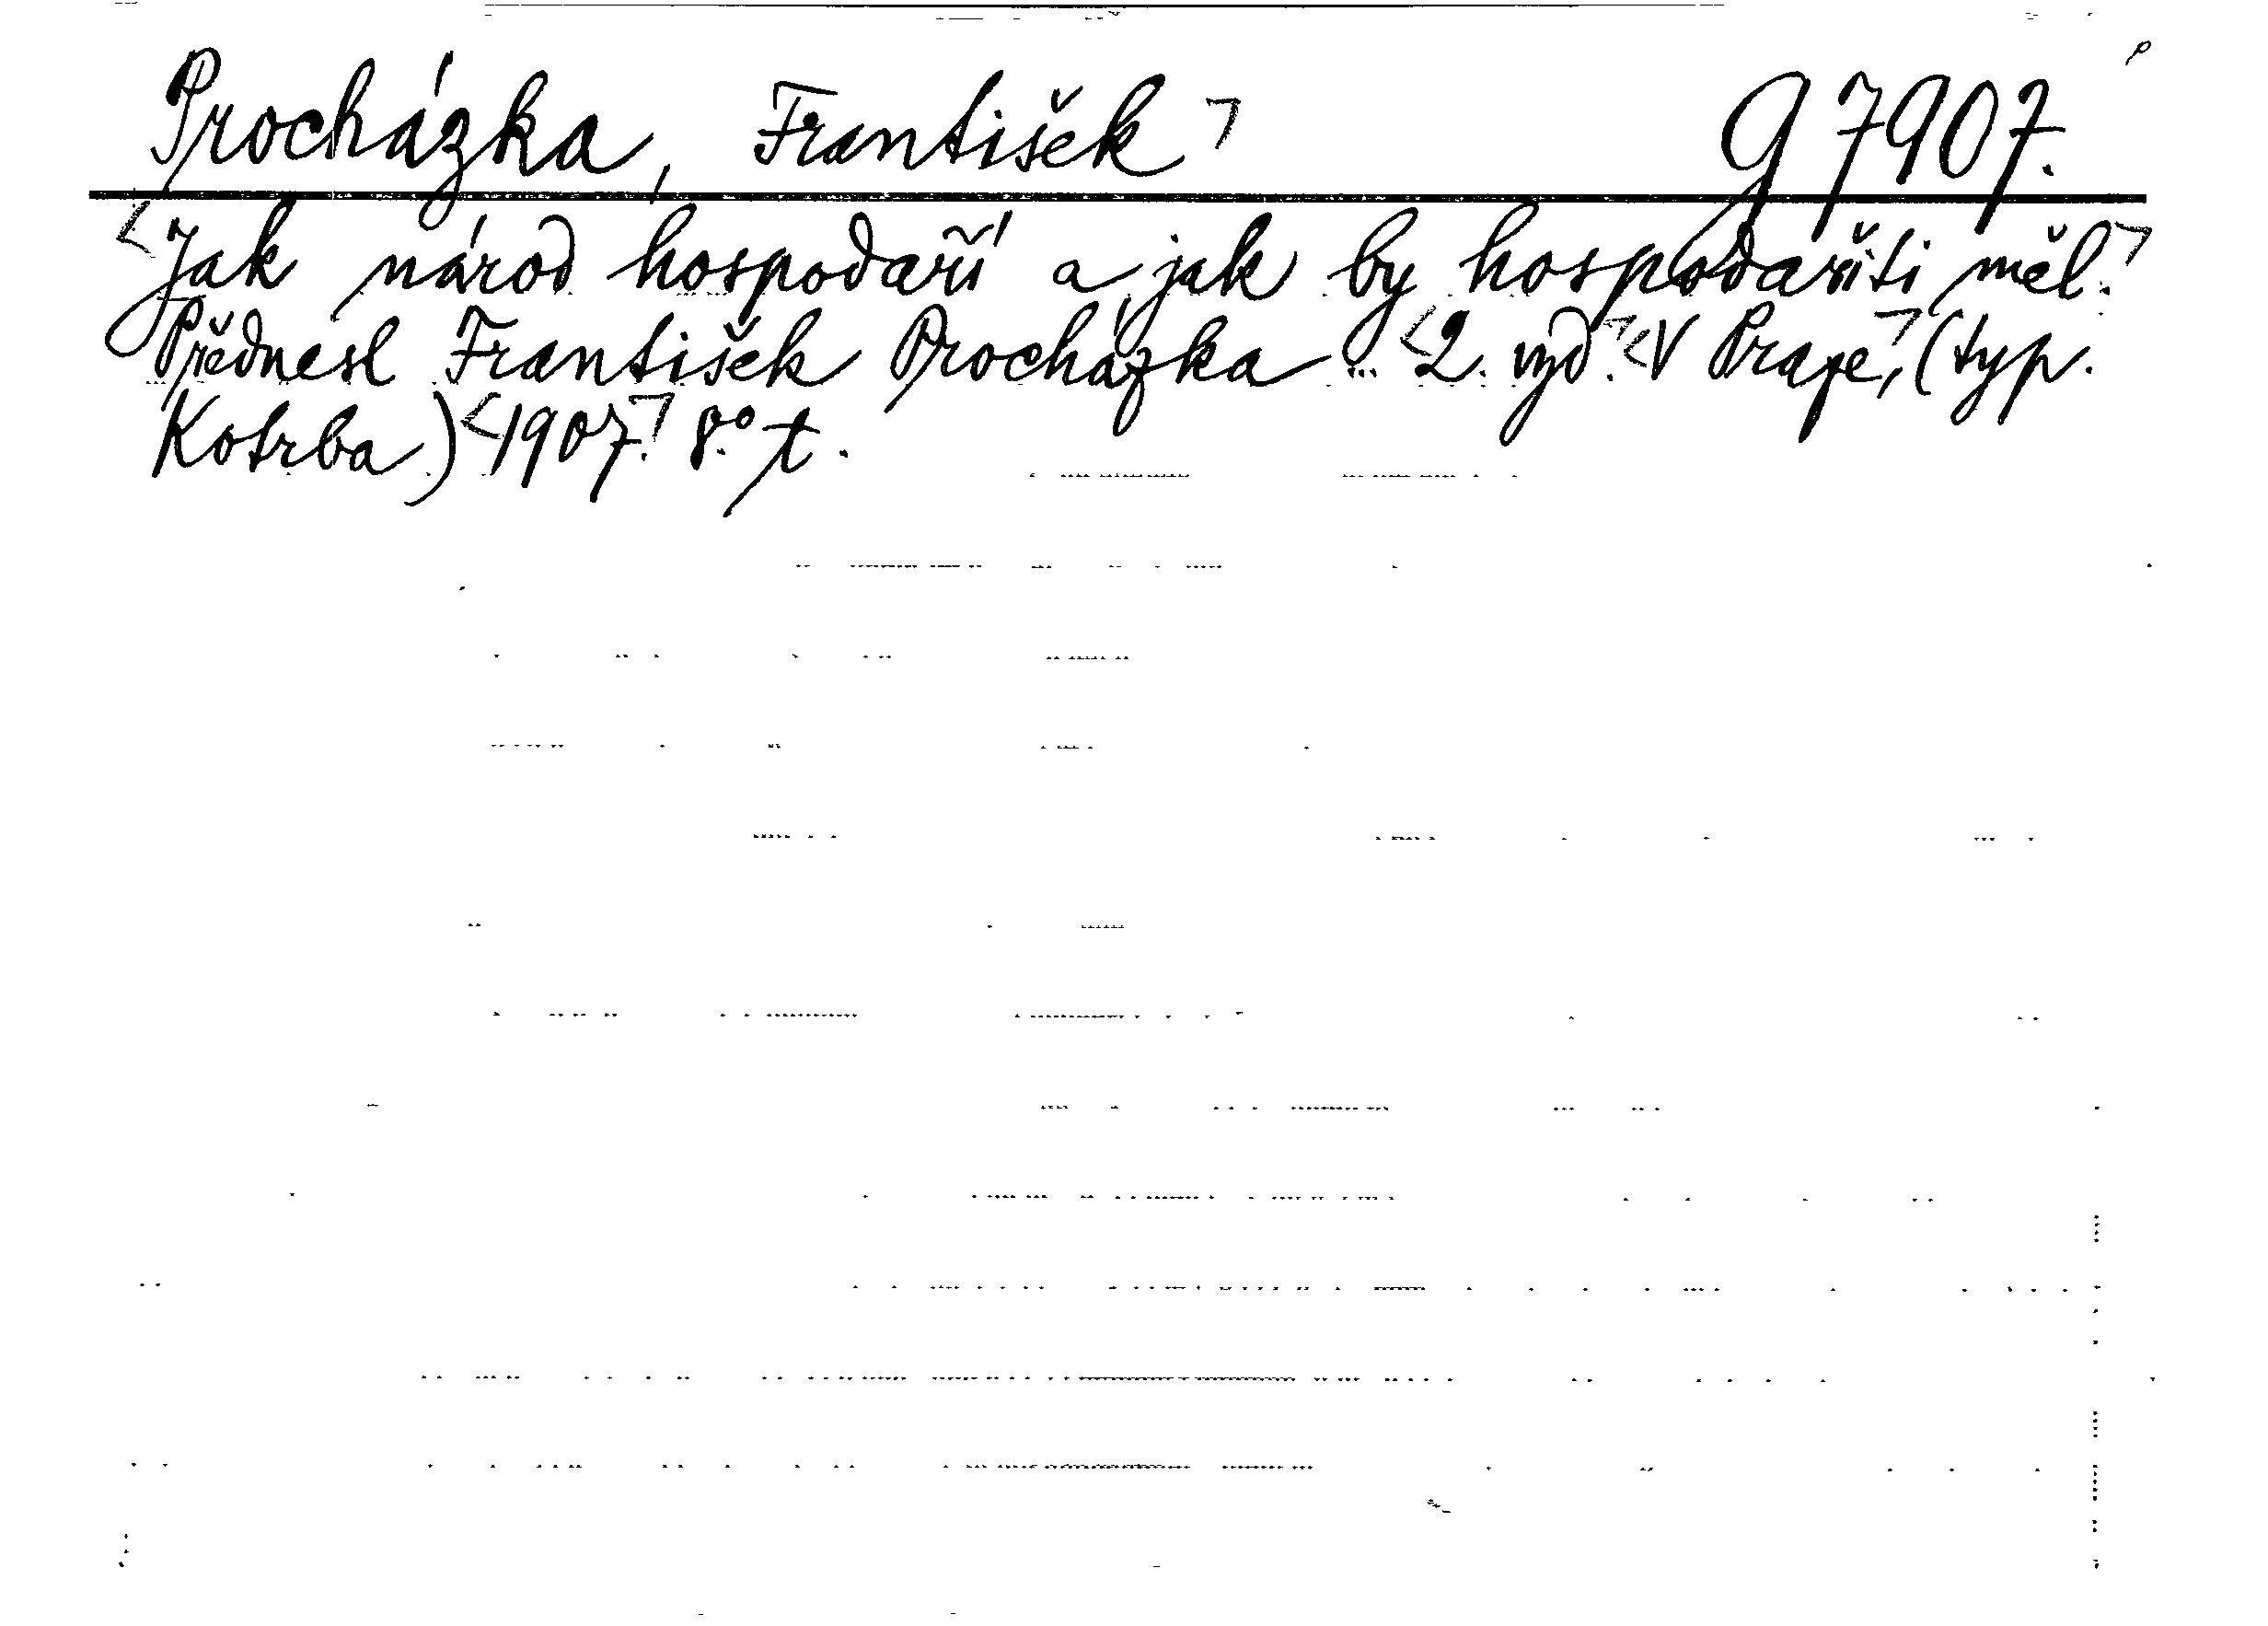 Procházka, František g 7907.
Jak národ hospodaří a jak by hospodařiti měl.
Přednesl František Procházka ... 2. vyd. V Praze, (typ.
Kotrba) 1907. 8.° t.